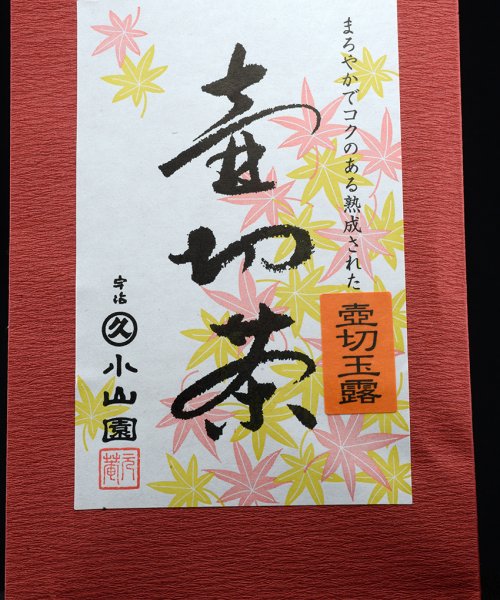 まろやかでコクのある熟成された
壺切玉露
壺切茶
宇治
久小山園
元庵